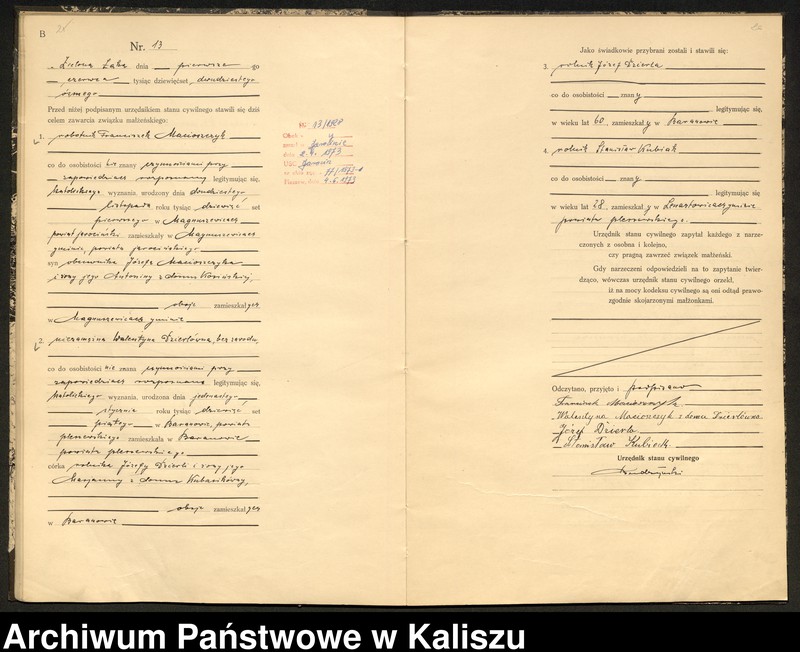 B
Nr. 13
Zielona Łąka dnia pierwsze go
czerwca tysiąc dziewięćset dwudziestego
ósmego
Przed niżej podpisanym urzędnikiem stanu cywilnego stawili się dziś
celem zawarcia związku małżeńskiego:
1. robotnik Franciszek Macioszczyk
co do osobistości nie znany czynnościami przy
zapowiedziach rozpoznany legitymując się,
katolickiego wyznania, urodzony dnia dwudziestego
listopada roku tysiąc dziewięć set
pierwszego w Magnuszewicach
powiat jarociński, zamieszkały w Magnuszewicach
gminie, powiatu jarocińskiego
syn Józefa Macioszczyka
i żony jego Antoniny z domu
oboje zamieszkał ych
w Magnuszewicach gminie
2. niezamężna Walentyna Dzierlówna, bez zawodu,
co do osobistości nie znana czynnościami przy
zapowiedziach rozpoznana legitymując się,
katolickiego wyznania, urodzona dnia jedenastego
stycznia roku tysiąc dziewięć set
piątego w Baranowie, powiatu
pleszewskiego zamieszkała w Baranowie
powiatu pleszewskiego
córka rolnika Józefa Dzierli i żony jego
Marjanny z domu Kubiakówny,
oboje zamieszkał ych
w Baranowie
13/1928
Jarocinie
USC Jarocin
Jako świadkowie przybrani zostali i stawili się:
3. rolnik Józef Dzierla
co do osobistości znany
legitymując się,
w wieku lat 60, zamieszkały w Baranowie
4. rolnik Stanisław Kubiak
co do osobistości znany
legitymując się
w wieku lat 28, zamieszkały w gminie
powiatu pleszewskiego.
Urzędnik stanu cywilnego zapytał każdego z narze-
czonych z osobna i kolejno,
czy pragną zawrzeć związek małżeński.
Gdy narzeczeni odpowiedzieli na to zapytanie twier-
dząco, wówczas urzędnik stanu cywilnego orzekł,
iż na mocy kodeksu cywilnego są oni odtąd prawo-
zgodnie skojarzonymi małżonkami.
Odczytano, przyjęto i podpisano
Franciszek Macioszczyk
Walentyna Macioszczyk z domu Dzierlówna
Józef Dzierla
Stanisław Kubiak
Urzędnik stanu cywilnego
Archiwum Państwowe w Kaliszu